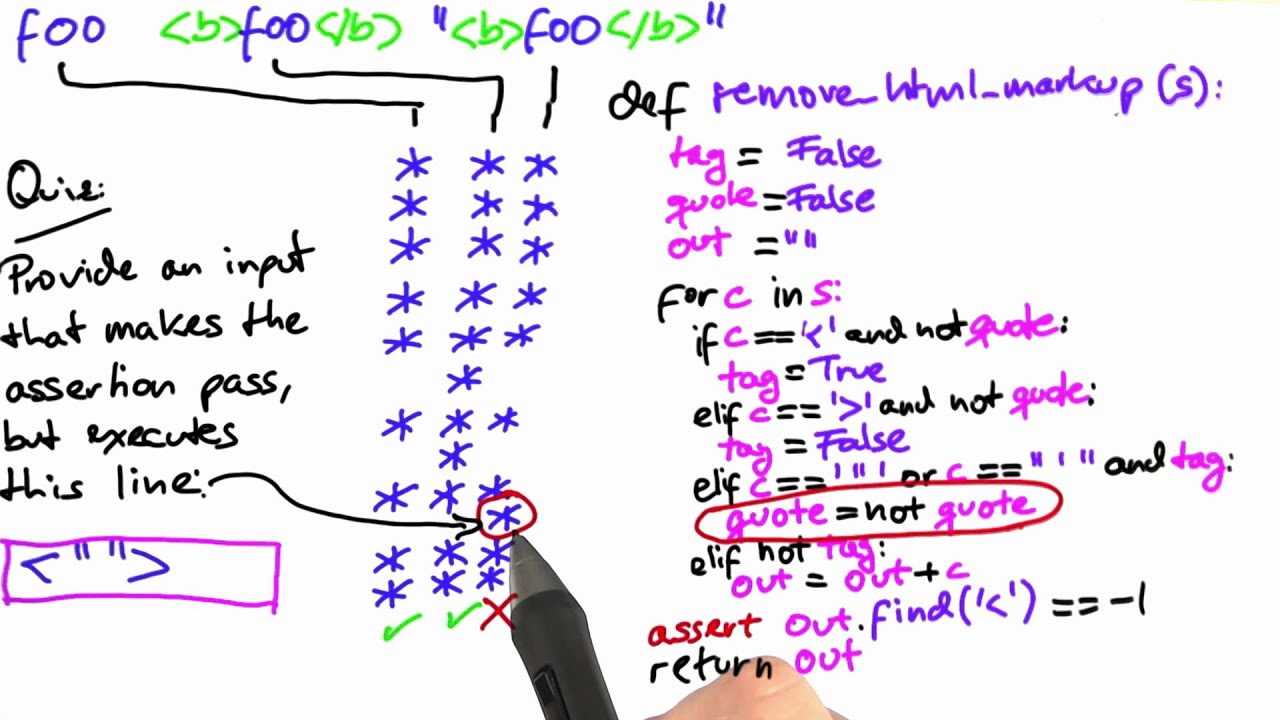 foo <b>foo</b> "<b>foo</b>"
Quiz:
Provide an input
that makes the
assertion pass,
but executes
this line:
<" ">
* * *
* * *
* * *
* * *
* * *
*
* * *
*
* * *
*
* * *
* * *
✓ ✓ ✗
def remove_html_markup(s):
tag = False
quote = False
out = ""
for c in s:
if c == '<' and not quote:
tag = True
elif c == '>' and not quote:
tag = False
elif c == '"' or c == "'" and tag:
quote = not quote
elif not tag:
out = out + c
assert out.find('<') == -1
return out